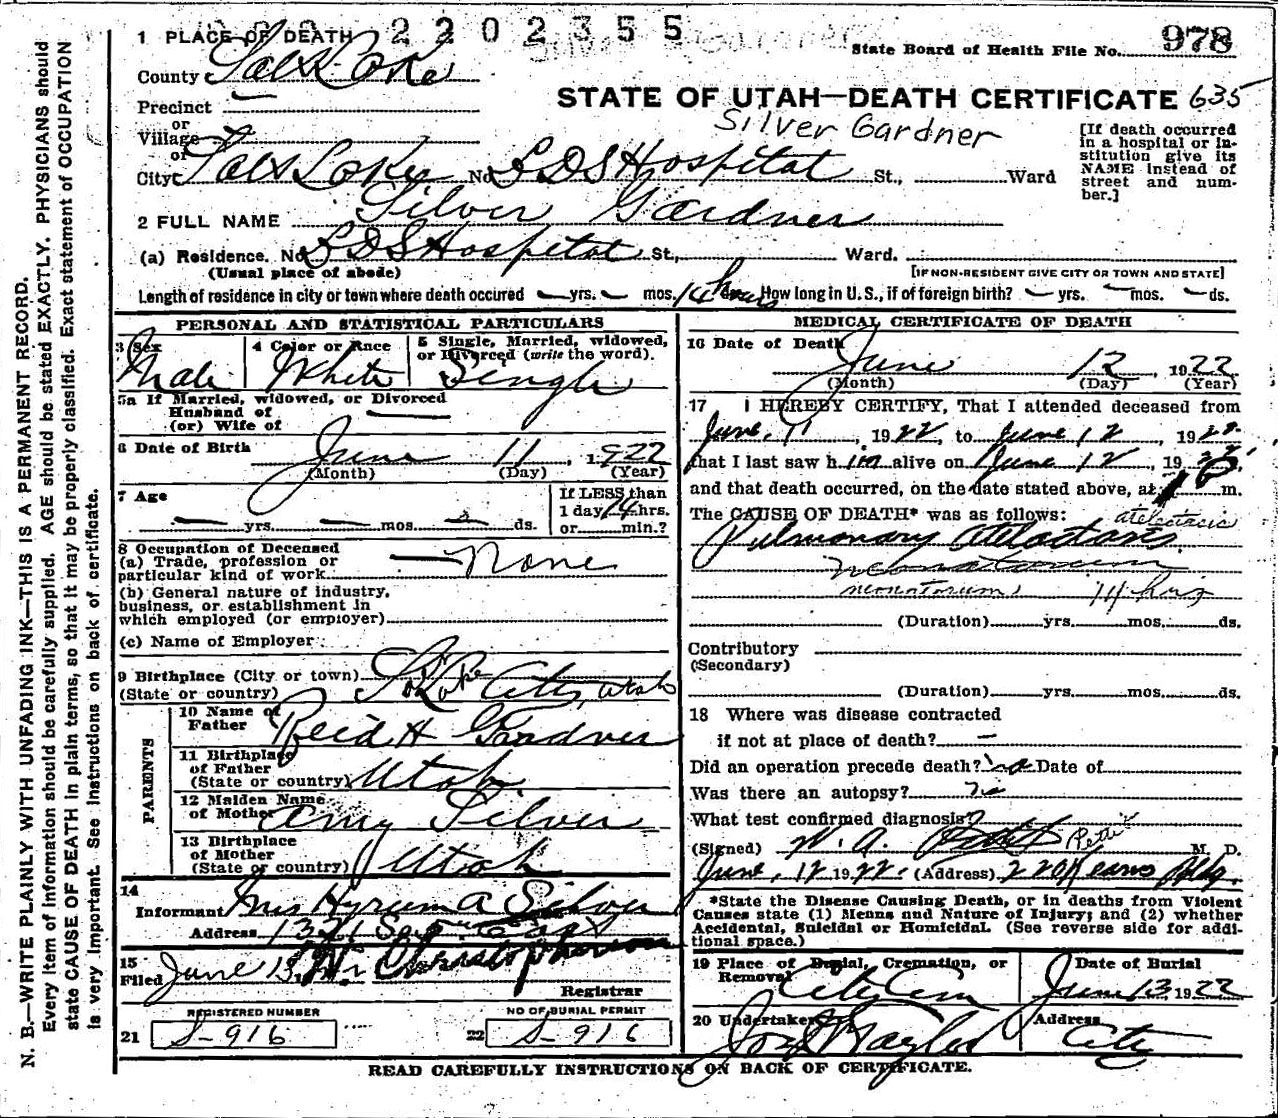 2202355
978
State Board of Health File No.
1 PLACE OF DEATH
County Salt Lake
STATE OF UTAH—DEATH CERTIFICATE 635
Precinct
or
Village
or
Silver Gardner
[If death occurred
in a hospital or in-
stitution give its
NAME instead of
street and num-
ber.]
City Salt Lake No LDS Hospital St., Ward
2 FULL NAME Silver Gardner
(a) Residence. No LDS Hospital St., Ward.
(Usual place of abode) [IF NON-RESIDENT GIVE CITY OR TOWN AND STATE]
Length of residence in city or town where death occured — yrs. — mos. 14 hours ds. How long in U.S., if of foreign birth? — yrs. — mos. — ds.
PERSONAL AND STATISTICAL PARTICULARS
3 Sex
Male
4 Color or Race
White
5 Single, Married, widowed,
or Divorced (write the word).
Single
5a If Married, widowed, or Divorced
Husband of
(or) Wife of
6 Date of Birth June 11, 1922
(Month) (Day) (Year)
7 Age
— yrs. — mos. ds.
If LESS than
1 day 14 hrs.
or min.?
8 Occupation of Deceased
(a) Trade, profession or
particular kind of work — None
(b) General nature of industry,
business, or establishment in
which employed (or employer)
(c) Name of Employer
9 Birthplace (City or town) S. Lake City, Utah
(State or country)
PARENTS
10 Name of
Father Reid H Gardner
11 Birthplace
of Father
(State or country) Utah.
12 Maiden Name
of Mother Amy Silver
13 Birthplace
of Mother
(State or country) Utah
14
Informant Mrs Hyrum A Silver
Address 1321 So. East
15
Filed June 13, W. Christopherson
Registrar
REGISTERED NUMBER
21 S-916
NO OF BURIAL PERMIT
22 S-916
MEDICAL CERTIFICATE OF DEATH
16 Date of Death June 12 1922
(Month) (Day) (Year)
17 I HEREBY CERTIFY, That I attended deceased from
June, 11, 1922, to June 12, 1922.
that I last saw him alive on June 12, 1922.
and that death occurred, on the date stated above, at m.
The CAUSE OF DEATH* was as follows:
atelectasis
Pulmonary atelectasis
neonatorum
neonatorum 14 hrs
(Duration) yrs. mos. ds.
Contributory
(Secondary)
(Duration) yrs. mos. ds.
18 Where was disease contracted
if not at place of death? —
Did an operation precede death? no Date of
Was there an autopsy? no
What test confirmed diagnosis?
(Signed) W. A. Pettit Pettit M. D.
June, 12 1922. (Address) 220 Kearns Bldg.
*State the Disease Causing Death, or in deaths from Violent
Causes state (1) Means and Nature of Injury; and (2) whether
Accidental, Suicidal or Homicidal. (See reverse side for addi-
tional space.)
19 Place of Burial, Cremation, or
Removal City Cem
Date of Burial
June 13, 1922
20 Undertaker Jos Taylor
Address
City
READ CAREFULLY INSTRUCTIONS ON BACK OF CERTIFICATE.
N. B.—WRITE PLAINLY WITH UNFADING INK—THIS IS A PERMANENT RECORD.
Every item of information should be carefully supplied. AGE should be stated EXACTLY. PHYSICIANS should
state CAUSE OF DEATH in plain terms, so that it may be properly classified. Exact statement of OCCUPATION
is very important. See instructions on back of certificate.